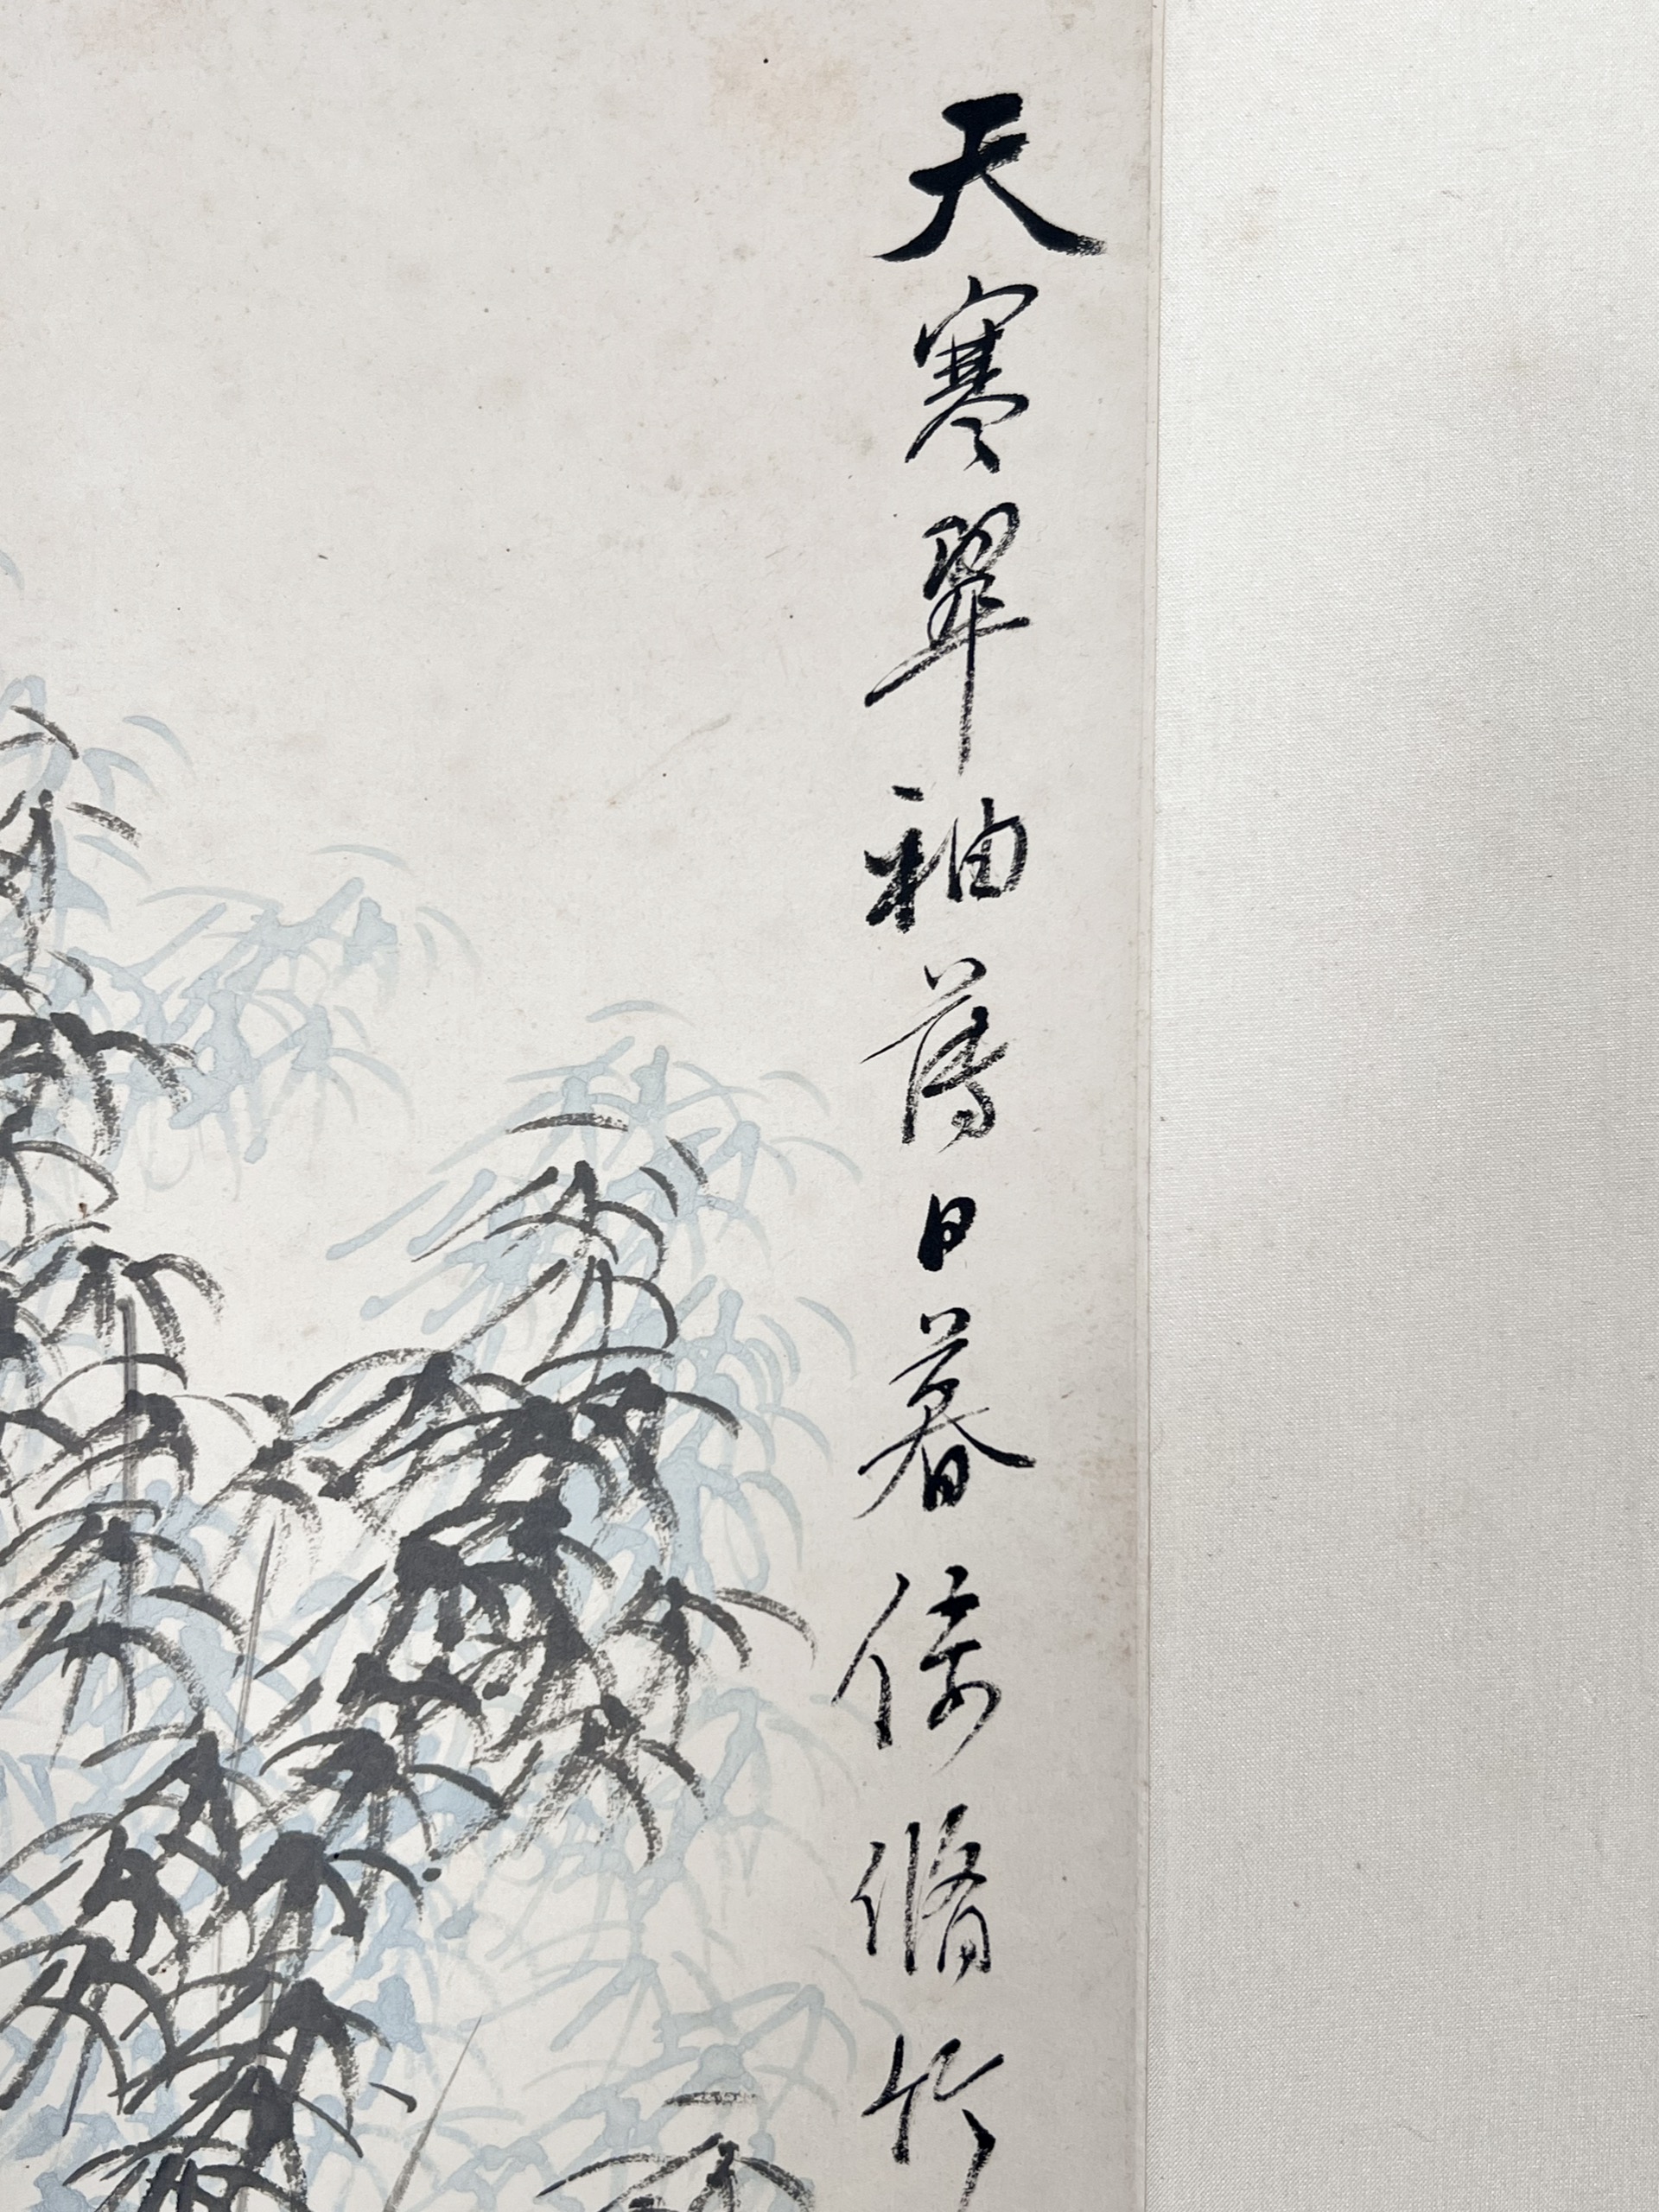 天寒翠袖薄日暮倚脩竹